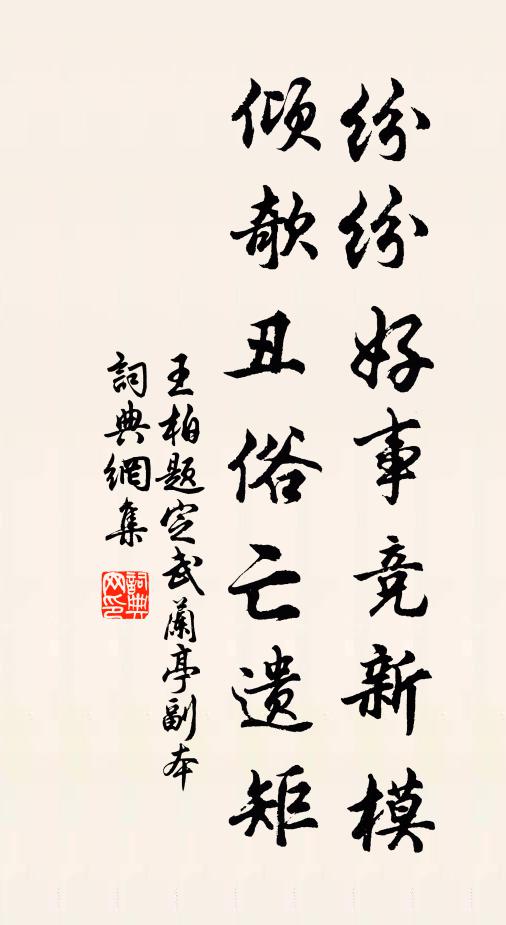 纷纷好事竞新模
倾欹丑俗亡遗矩
王柏题定武蘭亭副本
詞典網集
詞典网印